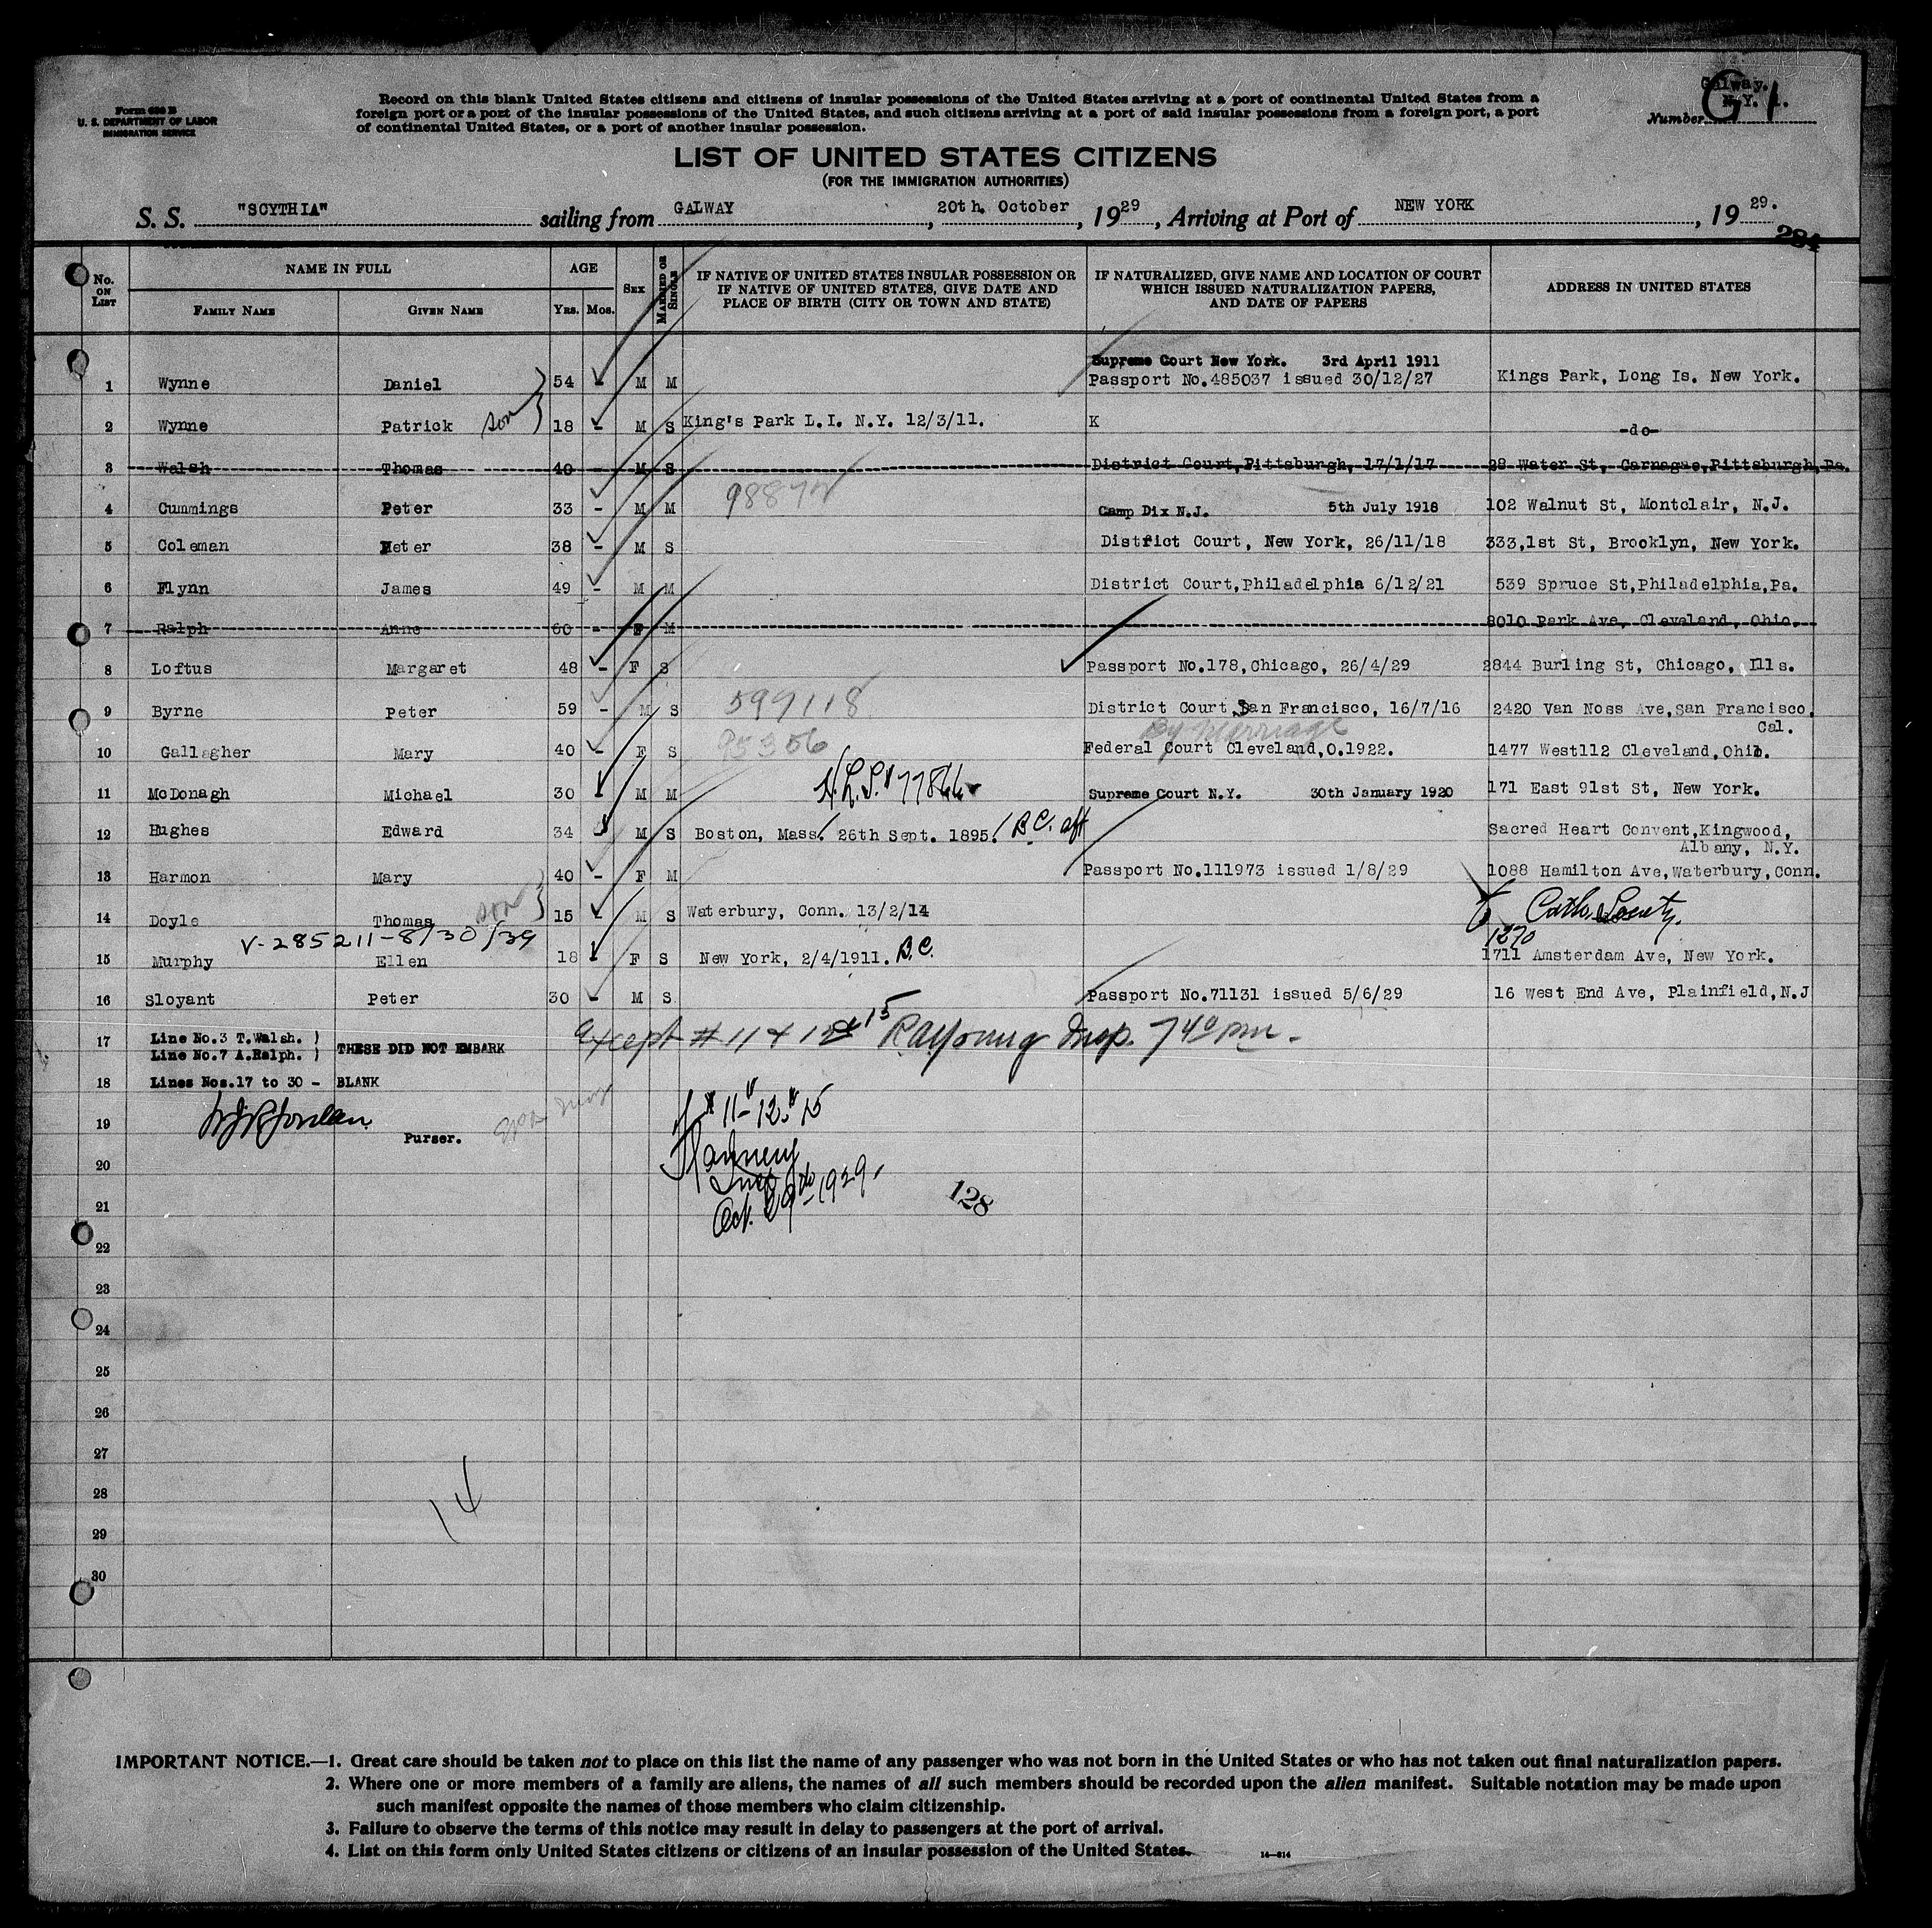 Form 630 B
U. S. DEPARTMENT OF LABOR
IMMIGRATION SERVICE
Record on this blank United States citizens and citizens of insular possessions of the United States arriving at a port of continental United States from a
foreign port or a port of the insular possessions of the United States, and such citizens arriving at a port of said insular possessions from a foreign port, a port
of continental United States, or a port of another insular possession.
Galway.
N.Y. 1.
Number G1
LIST OF UNITED STATES CITIZENS
(FOR THE IMMIGRATION AUTHORITIES)
S. S. "SCYTHIA" sailing from GALWAY, 20th. October, 1929, Arriving at Port of NEW YORK, 1929.
284
No. ON LIST NAME IN FULL FAMILY NAME GIVEN NAME AGE YRS. MOS. SEX MARRIED OR SINGLE
IF NATIVE OF UNITED STATES INSULAR POSSESSION OR
IF NATIVE OF UNITED STATES, GIVE DATE AND
PLACE OF BIRTH (CITY OR TOWN AND STATE)
IF NATURALIZED, GIVE NAME AND LOCATION OF COURT
WHICH ISSUED NATURALIZATION PAPERS,
AND DATE OF PAPERS
ADDRESS IN UNITED STATES
Supreme Court New York. 3rd April 1911
1 Wynne Daniel 54 - M M Passport No.485037 issued 30/12/27 Kings Park, Long Is. New York.
2 Wynne Patrick son 18 - M S King's Park L.I. N.Y. 12/3/11. K -do-
3 Walsh Thomas 40 - M S District Court,Pittsburgh, 17/1/17 28 Water St, Carnague,Pittsburgh,Pa.
98872
4 Cummings Peter 33 - M M Camp Dix N.J. 5th July 1918 102 Walnut St, Montclair, N.J.
5 Coleman Peter 38 - M S District Court, New York, 26/11/18 333,1st St, Brooklyn, New York.
6 Flynn James 49 - M M District Court,Philadelphia 6/12/21 539 Spruce St,Philadelphia,Pa.
7 Ralph Anne 60 - F M 8010 Park Ave, Cleveland, Ohio.
8 Loftus Margaret 48 - F S Passport No.178,Chicago, 26/4/29 2844 Burling St, Chicago, Ills.
9 Byrne Peter 59 - M S 599118 District Court,San Francisco, 16/7/16 2420 Van Noss Ave,San Francisco,
Cal.
By Marriage
10 Gallagher Mary 40 - F S 95356 Federal Court Cleveland,O.1922. 1477 West112 Cleveland,Ohio.
11 McDonagh Michael 30 - M M Supreme Court N.Y. 30th January 1920 171 East 91st St, New York.
12 Hughes Edward 34 - M S Boston, Mass. 26th Sept. 1895. B.C. aff Sacred Heart Convent,Kingwood,
Albany, N.Y.
13 Harmon Mary 40 - F M Passport No.111973 issued 1/8/29 1088 Hamilton Ave,Waterbury,Conn.
14 Doyle Thomas son 15 - M S Waterbury, Conn. 13/2/14
V-285211-8/30/39
1270
15 Murphy Ellen 18 - F S New York, 2/4/1911. B.C. 1711 Amsterdam Ave, New York.
16 Sloyant Peter 30 - M S Passport No.71131 issued 5/6/29 16 West End Ave, Plainfield,N.J
17 Line No.3 T.Walsh. )
Line No.7 A.Ralph. ) THESE DID NOT EMBARK
Except # 11 & 12 & 15 RAYoung Insp. 740pm.
18 Lines Nos.17 to 30 - BLANK
19 Purser.
# 11-12-15
20
Insp
21
Oct. 29 1929.
128
22
23
24
25
26
27
28
14
29
30
IMPORTANT NOTICE.—1. Great care should be taken not to place on this list the name of any passenger who was not born in the United States or who has not taken out final naturalization papers.
2. Where one or more members of a family are aliens, the names of all such members should be recorded upon the alien manifest. Suitable notation may be made upon
such manifest opposite the names of those members who claim citizenship.
3. Failure to observe the terms of this notice may result in delay to passengers at the port of arrival.
4. List on this form only United States citizens or citizens of an insular possession of the United States.
14—814